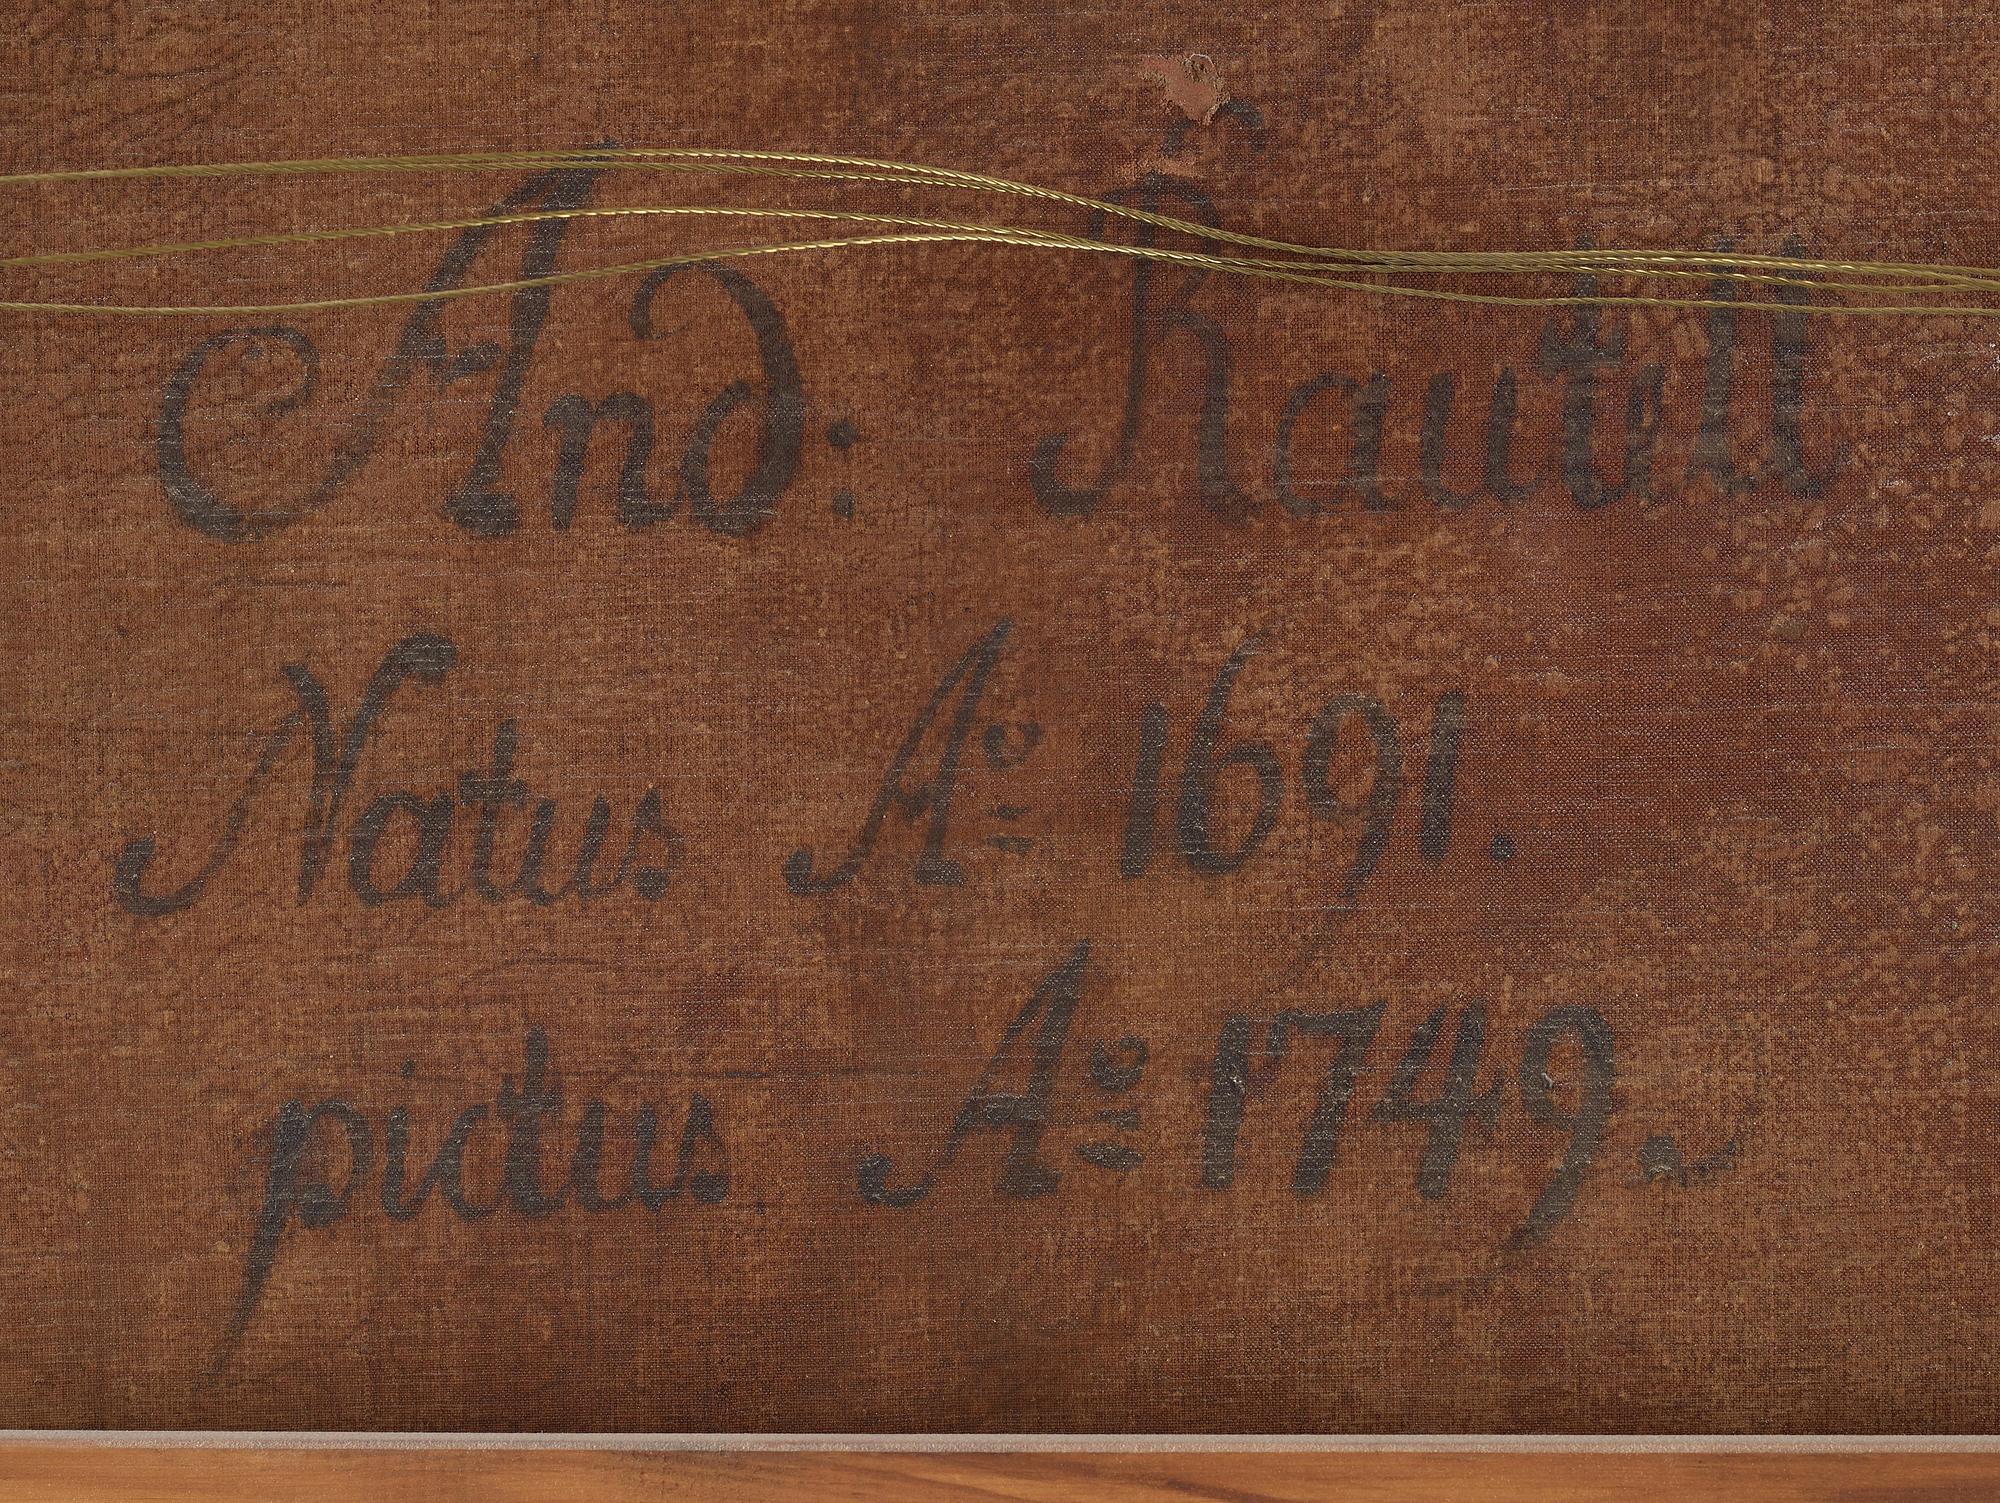 And: Rautell
Natus Aº 1691.
pictus Aº 1749.